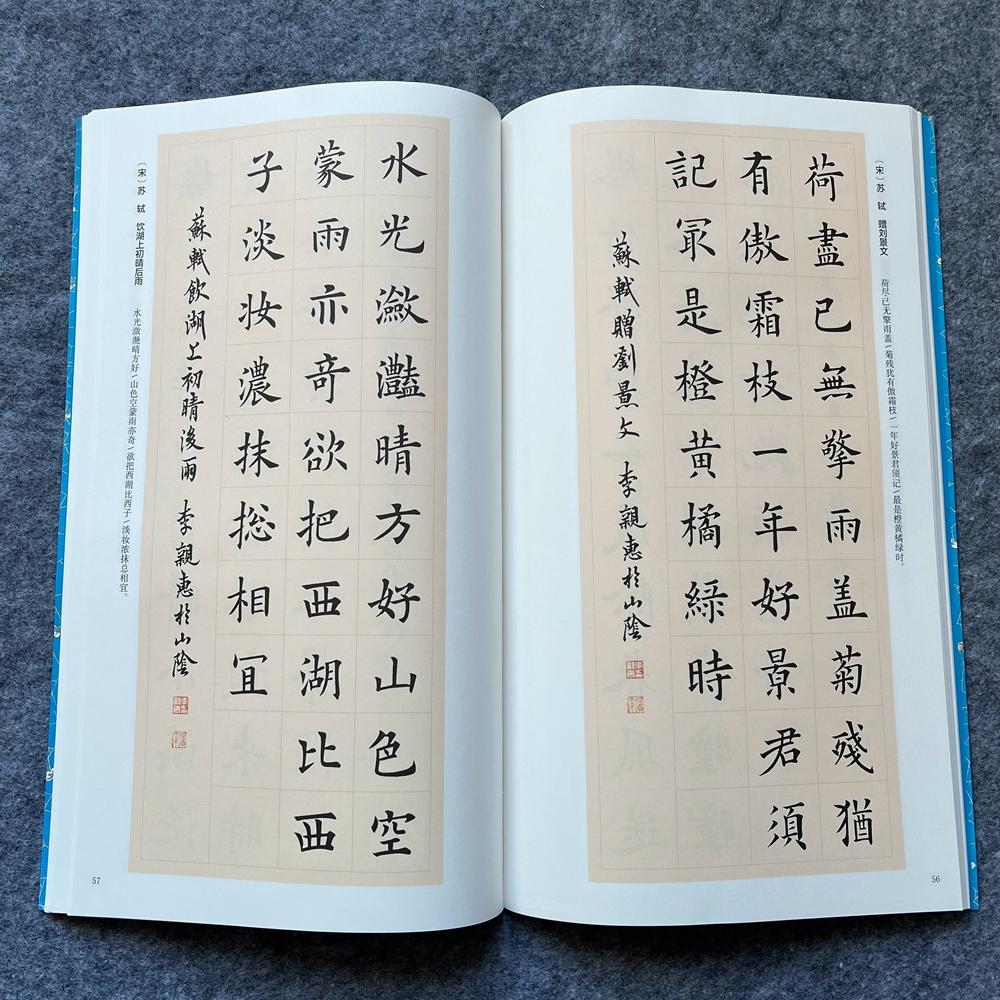 〔宋〕苏 轼 赠刘景文 荷尽已无擎雨盖/菊残犹有傲霜枝/一年好景君须记/最是橙黄橘绿时。
荷盡已無擎雨盖菊殘猶
有傲霜枝一年好景君須
記冣是橙黄橘緑時
蘇軾贈劉景文 李親惠於山陰
56
水光瀲灩晴方好山色空
蒙雨亦奇欲把西湖比西
子淡妆濃抹総相冝
蘇軾飲湖上初晴後雨 李親惠於山陰
〔宋〕苏 轼 饮湖上初晴后雨 水光潋滟晴方好/山色空蒙雨亦奇/欲把西湖比西子/淡妆浓抹总相宜。
57